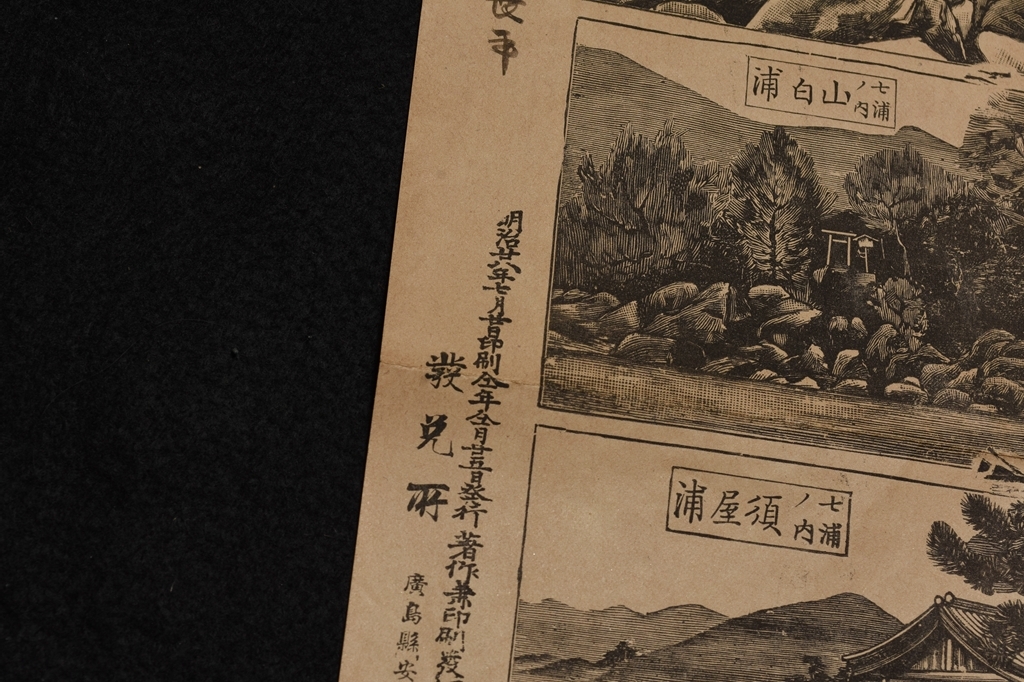 七浦ノ内
山白浦
七浦ノ内
須屋浦
明治廿八年七月廿日印刷仝年仝月廿五日發行 著作兼印刷發
發兌所
廣島縣安